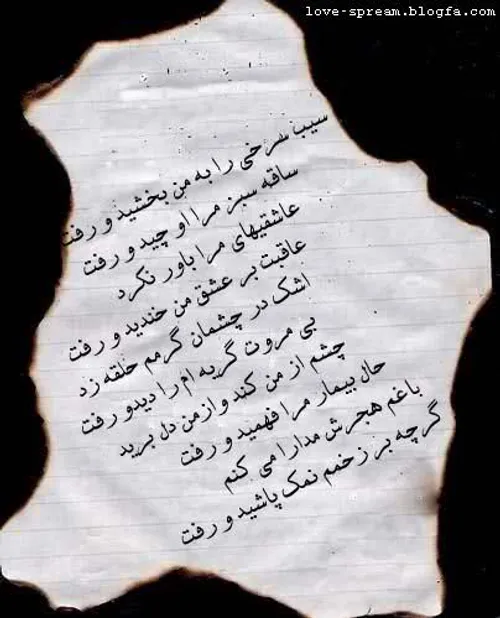 love-spream.blogfa.com
سیب سرخی را به من بخشید و رفت
ساقه سبز مرا او چید و رفت
عاشقیهای مرا باور نکرد
عاقبت بر عشق من خندید و رفت
اشک در چشمان گرمم حلقه زد
بی مروت گریه ام را دید و رفت
چشم از من کند و از من دل برید
حال بیمار مرا فهمید و رفت
با غم هجرش مدارا می کنم
گر چه بر زخمم نمک پاشید و رفت